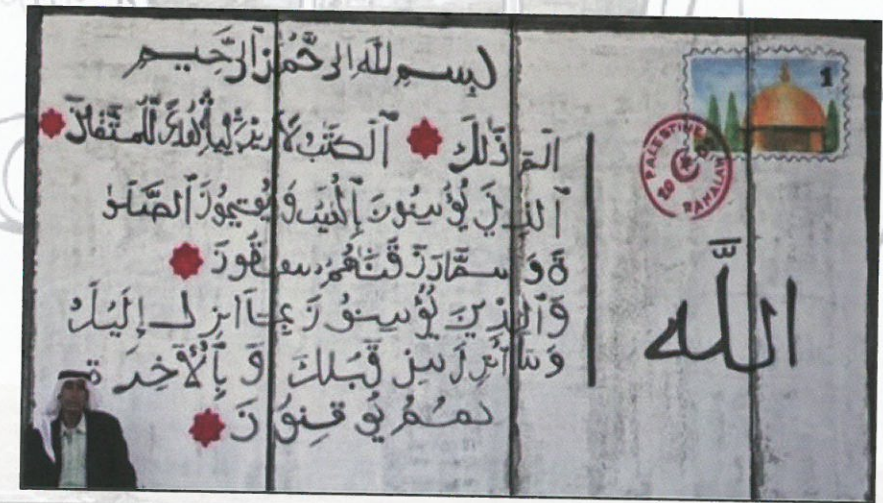 بسم لله الرحمن الرحيم
الم ذلك الكتب لا ريب فيه هدى للمتقين
الذين يؤمنون بالغيب و يقيمون الصلو
ة و مما رزقنهم ينفقون
والذين يؤمنون بما انزل إليك
وما أنزل من قبلك و بالأخرة
هم يوقنون
1
PALESTINE
RAMALAH
الله